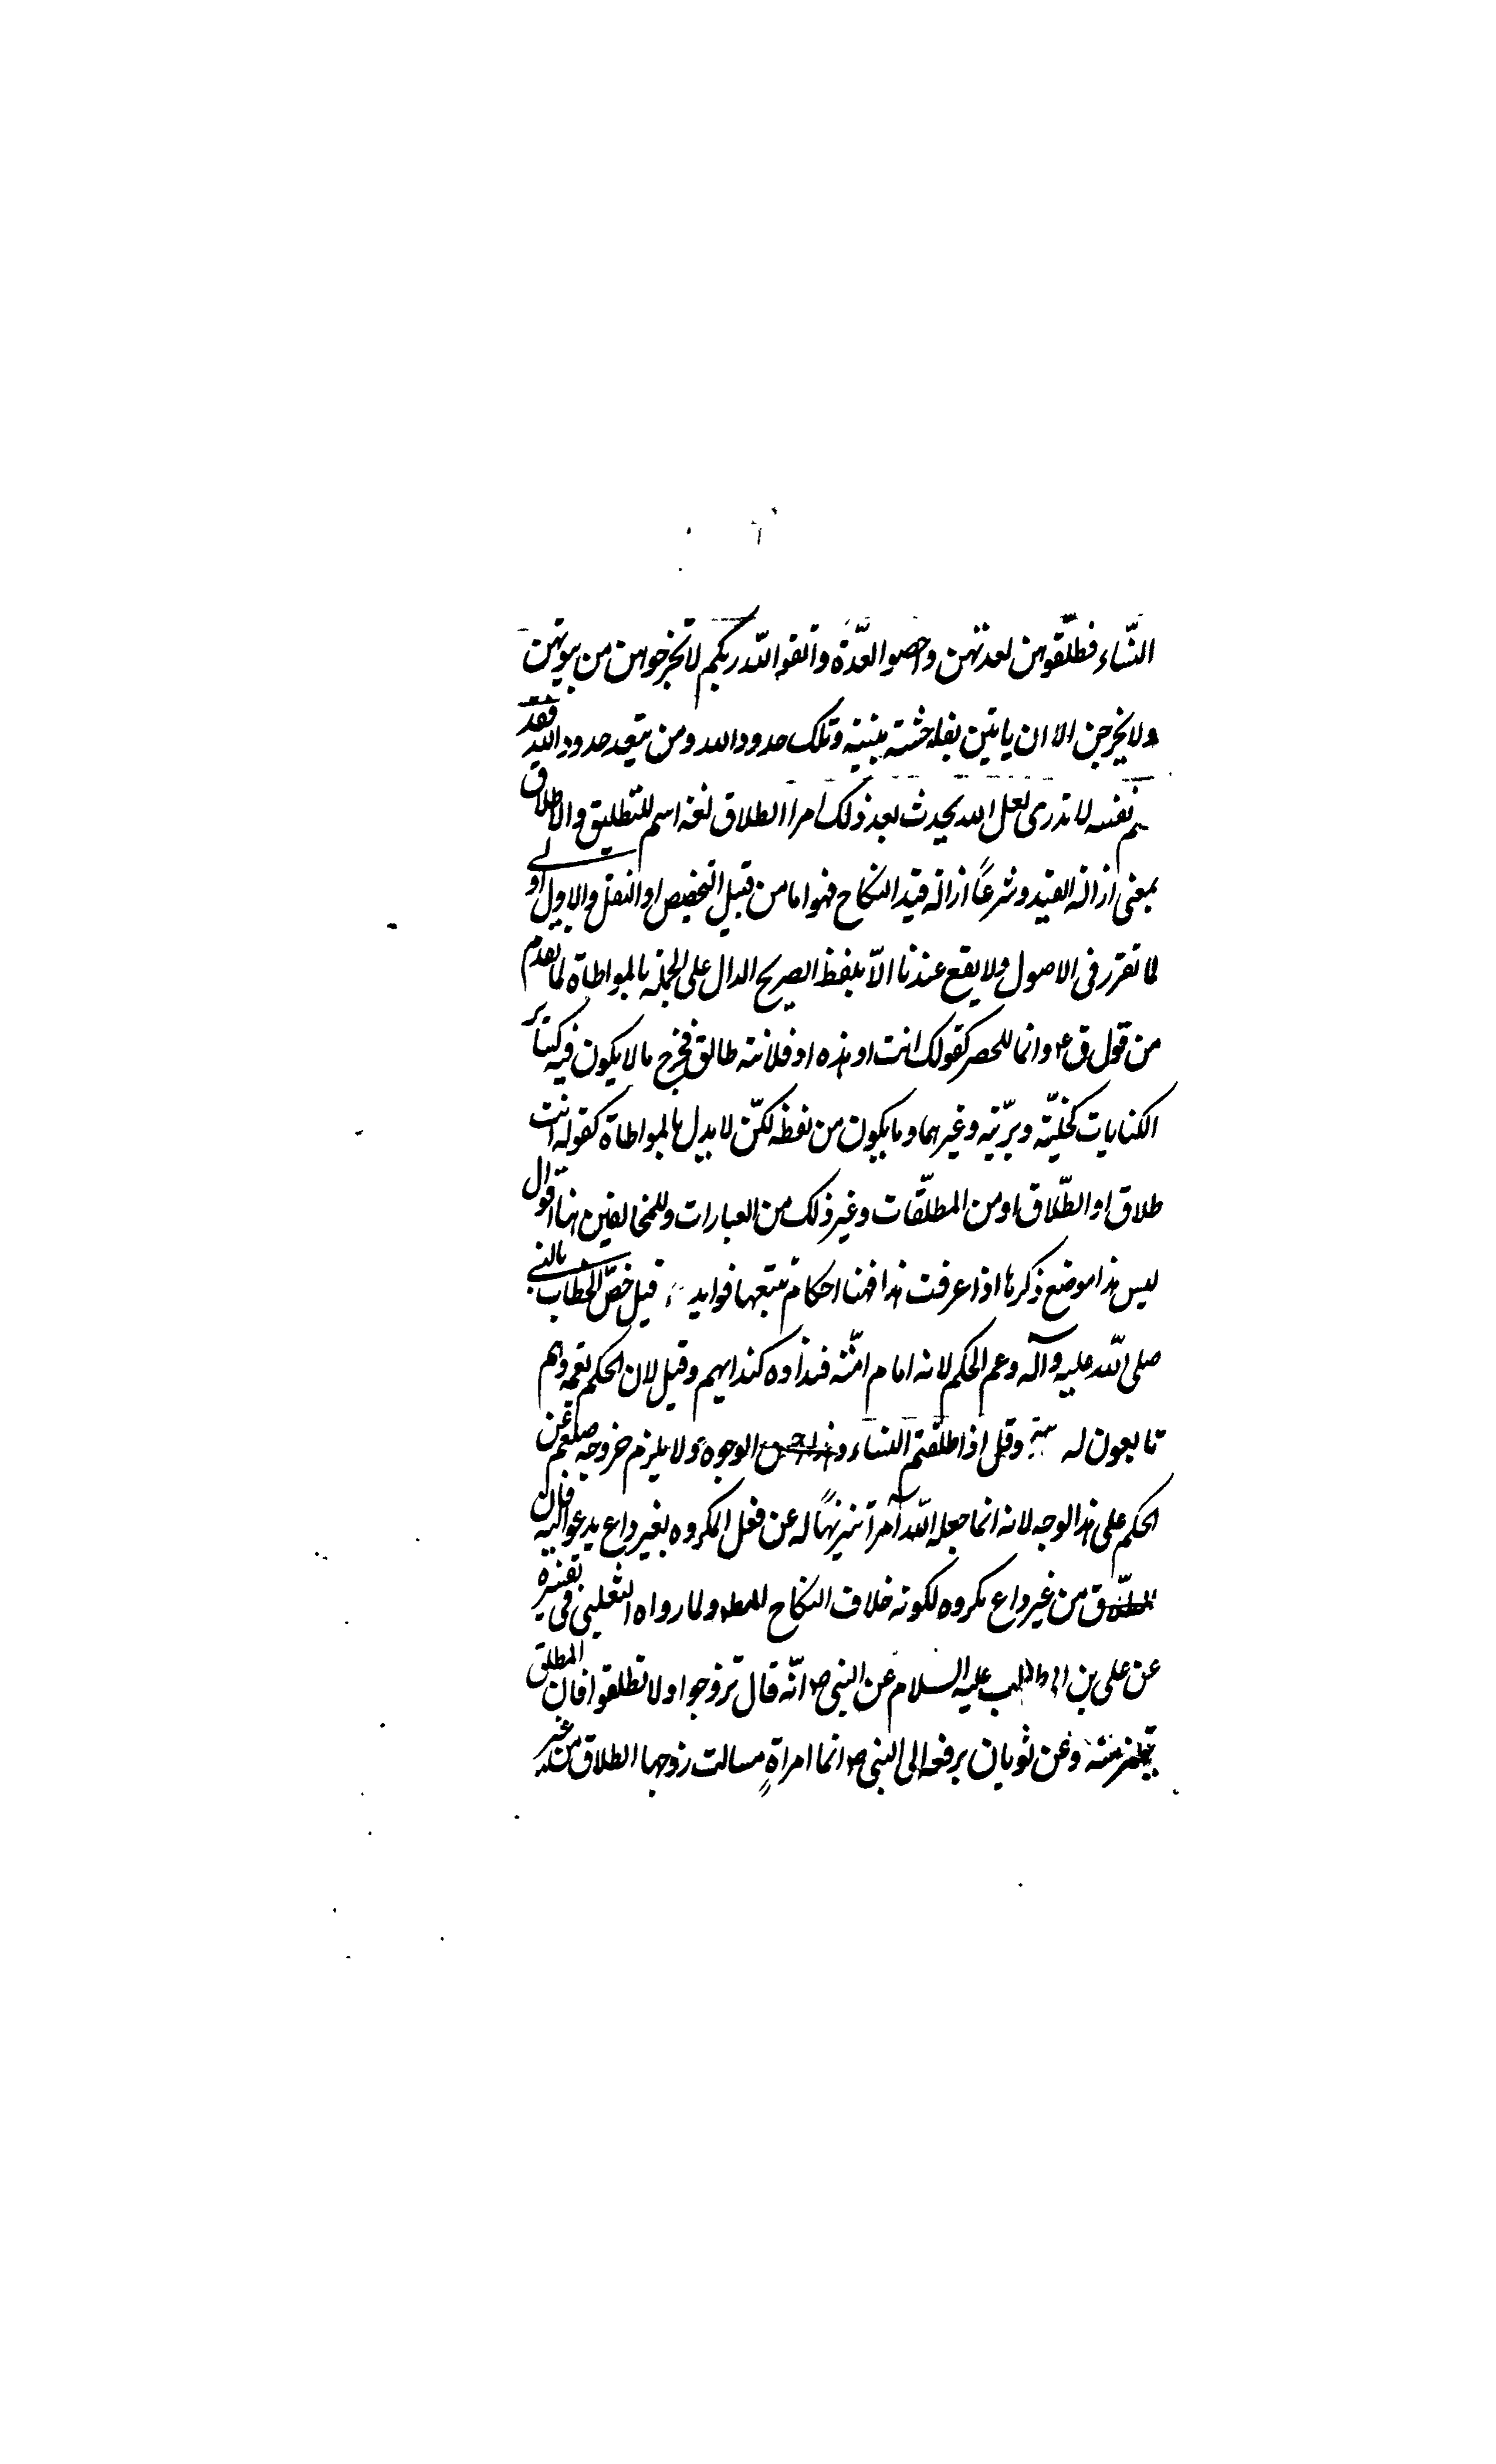 النّساء فطلّقوهن لعدتهن واحصوا العدّة واتقوا اللّه ربكم لا تخرجوهن من بيوتهن
ولا يخرجن الا ان ياتين بفاحشة مبينة وتلك حدود الله ومن يتعد حدود الله فقد
نفسه لا تدرى لعل الله يحدث بعد ذلك امرا الطلاق لغة اسم للتطليق والاطلاق
بمعنى ازالة القيد وشرعاً ازالة قيد النكاح فهو اما من قبيل التخصيص او النقل والاول اولى
لما تقرر فى الاصول ولا يقع عندنا الّا بلفظ الصريح الدال على الجملة بالمواطاة لما تقدم
من قول ق ع وانما للحصر كقولك انت او هذه او فلانة طالق فخرج ما لا يكون فيه كساير
الكنايات كخليّة وبريّة وغيرهما وما يكون من لفظه لكنّ لا يدل بالمواطاة كقوله انت
طلاق او الطّلاق او من المطلّقات وغير ذلك من العبارات وللمخالفين هنا اقوال
ليس هذا موضع ذكرها اذا عرفت هذا فهنا احكام تتبعها فوايد قيل خصّ الخطاب بالنبى
صلى اللّه عليه وآله وعم الحكم لانه امام امّته فنداوه كندايهم وقيل لان الحكم يعمه وهم
تابعون له وقيل اذا طلقتم النساء الوجوه ولا يلزم خروجه صلعم عن
الحكم على هذا الوجه لانه انما جعله اللّه آمراً تنزيهاً له عن فعل المكروه بغير داع يدعو اليه فان
الطلاق من غير داع مكروه لكونه خلاف النكاح ولما رواه الثعلبى فى تفسيره
عن على بن ابى طالب عليه السلام عن النبى ص انّه قال تزوجوا ولا تطلقوا فان المطلق
وعن ثوبان يرفعه الى النبى ص انما امراةٍ سالت زوجها الطلاق من غير